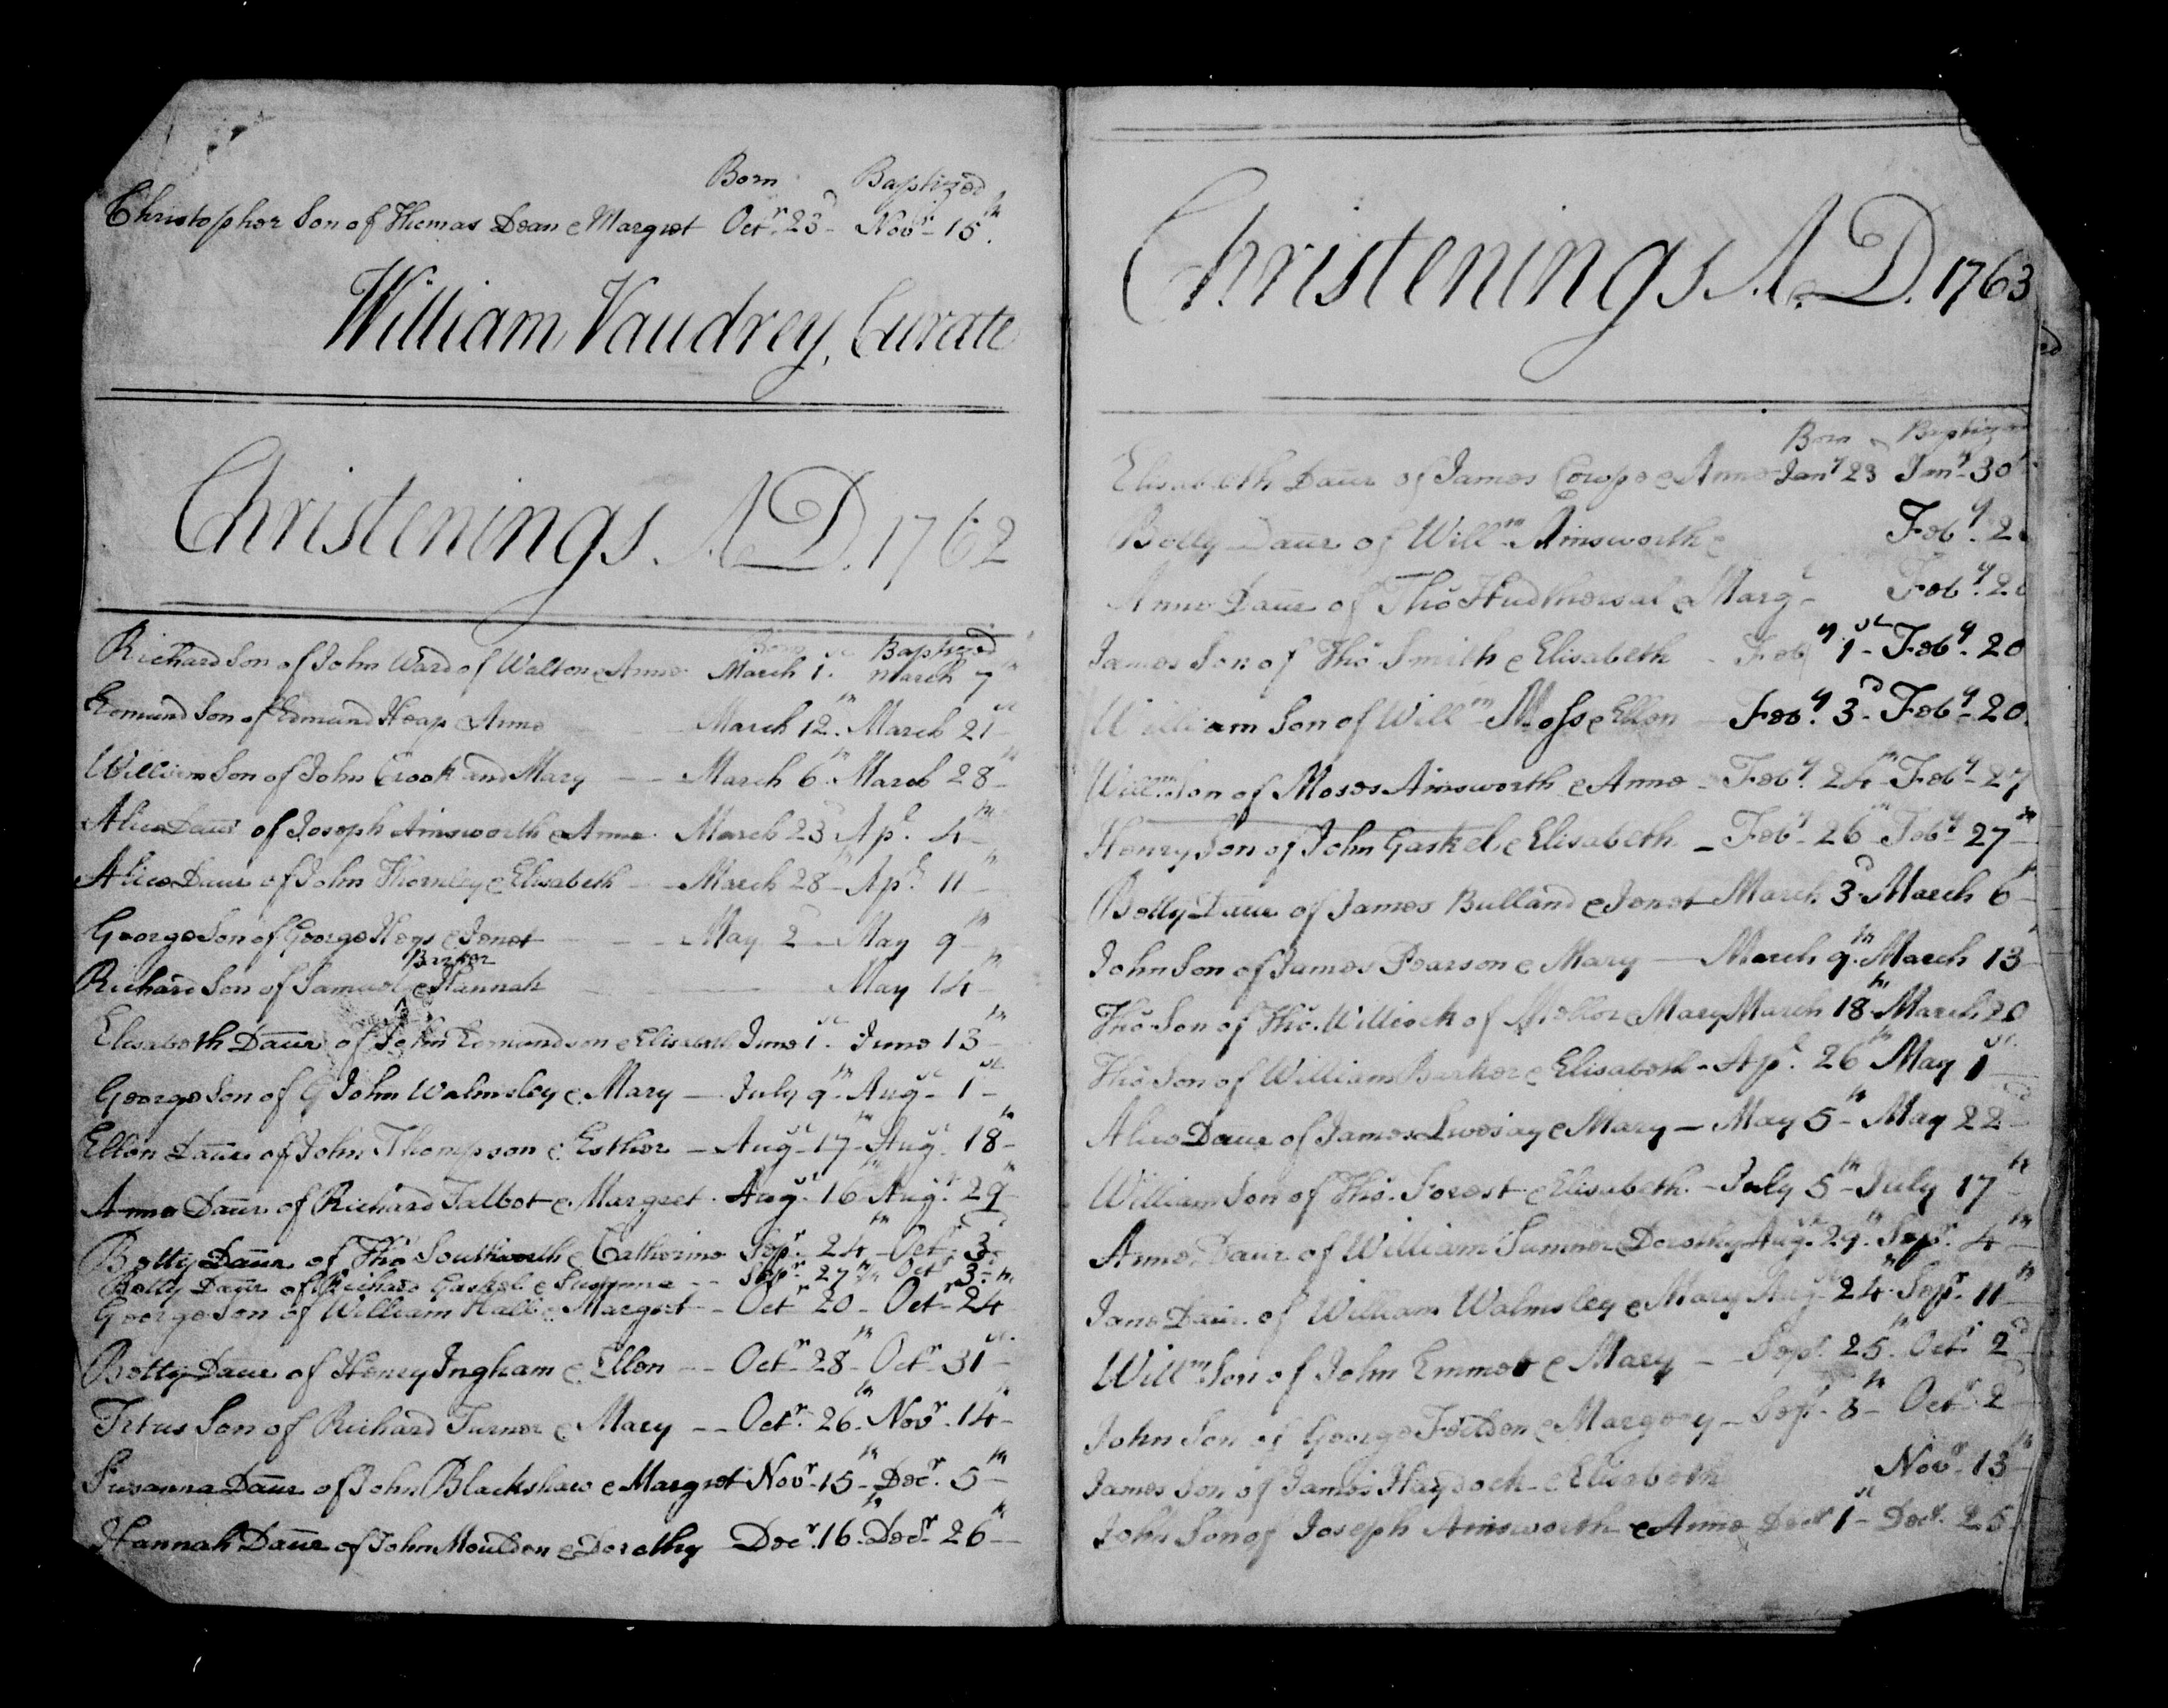 Born Baptized
Christopher Son of Thomas Dean & Margret Octr. 23d Novr. 15th.
William Vaudrey, Curate
Christenings A.D. 1762
Born Baptized
Richard Son of John Ward of Walton & Anne March 1st. March 7th
Edmund Son of Edmund Heap & Anne March 12th. March 21st
William Son of John Crook and Mary March 6th. March 28th
Alice Daur of Joseph Ainsworth & Anne March 23d Apl. 4th
Alice Daur of John Thornley & Elisabeth March 28th Apl. 11th
George Son of George Heys & Jenet May 2d May 9th
Barker
Richard Son of Samuel & Hannah May 14th
Elisabeth Daur of John Edmundson & Elisabeth June 1st. June 13th
George Son of John Walmsley & Mary July 9th. Augst 1st
Ellen Daur of John Thompson & Esther Augst 17th Augst 18th
Anne Daur of Richard Talbot & Margret Augst. 16th Augst. 29th
Betty Daur of Tho Southworth & Catherine Sepr. 24th Octr. 3d
Betty Daur of Richard Gaskel & Susanna Sepr. 27th Octr 3d
George Son of William Hall & Margret Octr 20th Octr 24th
Betty Daur of Henry Ingham & Ellen Octr 28th Octr 31st
Titus Son of Richard Turner & Mary Octr. 26th Novr. 14th
Susanna Daur of John Blackshaw & Margret Novr. 15th Decr. 5th
Hannah Daur of John Moulden & Dorothy Decr. 16th Decr 26th
Christenings A.D. 1763
Born Baptized
Elisabeth Daur of James Cowpe & Anne Jany 23 Jany 30th
Betty Daur of Willm Ainsworth & Feby. 2
Anne Daur of Tho Hudthersal & Margt Feby. 20
James Son of Tho Smith & Elisabeth Feby 1st Feby. 20
William Son of Willm Moss & Ellen Feby. 3d Feby. 20
Willm Son of Moses Ainsworth & Anne Feby. 24th Feby. 27
Henry Son of John Gaskel & Elisabeth Feby 26th Feby 27th
Betty Daur of James Bulland & Jenet March 3d March 6th
John Son of James Pearson & Mary March 9th. March 13th
Tho Son of Tho. Willcock of Mellor & Mary March 18th March 20
Tho Son of William Barker & Elisabeth Apl. 26th May 1st
Alice Daur of James Livesay & Mary May 5th May 22d
William Son of Tho. Forest & Elisabeth July 5th July 17th
Anne Daur of William Sumner & Dorothy Augst 29th Sepr. 4th
Jane Daur of William Walmsley & Mary Augst 24th Sepr. 11th
Willm Son of John Emmet & Mary Sepr. 25th Octr 2d
John Son of George Feilden & Margery Sepr. 8th Octr. 2d
James Son of James Haydock & Elisabeth Novr. 13th
John Son of Joseph Ainsworth & Anne Decr 1st Decr. 25